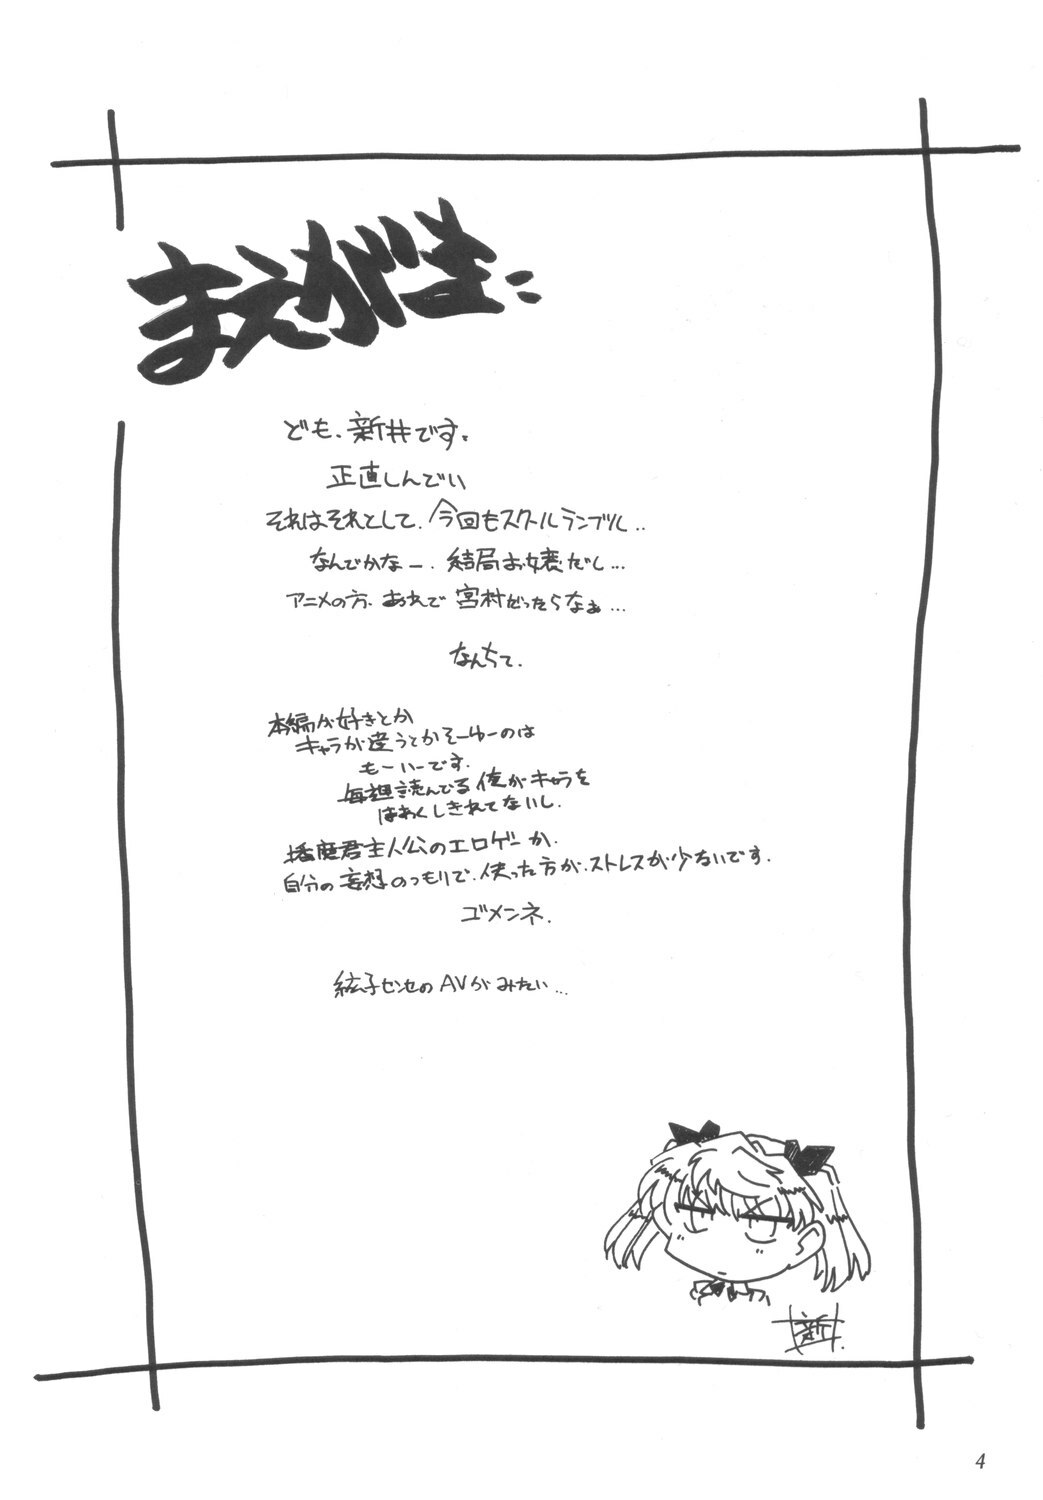 まえがき
ども、新井です。
正直しんどい
それはそれとして、今回もスクールランブルし..
なんでかなー、結局お嬢だし...
アニメの方、あれで宮村だったらなぁ...
なんちて、
本編が好きとか
キャラが違うとかそーゆーのは
もーいーです。
毎週読んでる俺がキャラを
はあくしきれてないし、
播磨君主人公のエロゲーか、
自分の妄想のつもりで、使った方が、ストレスが少ないです。
ゴメンネ、
絃子センセのAVがみたい...
新井
4